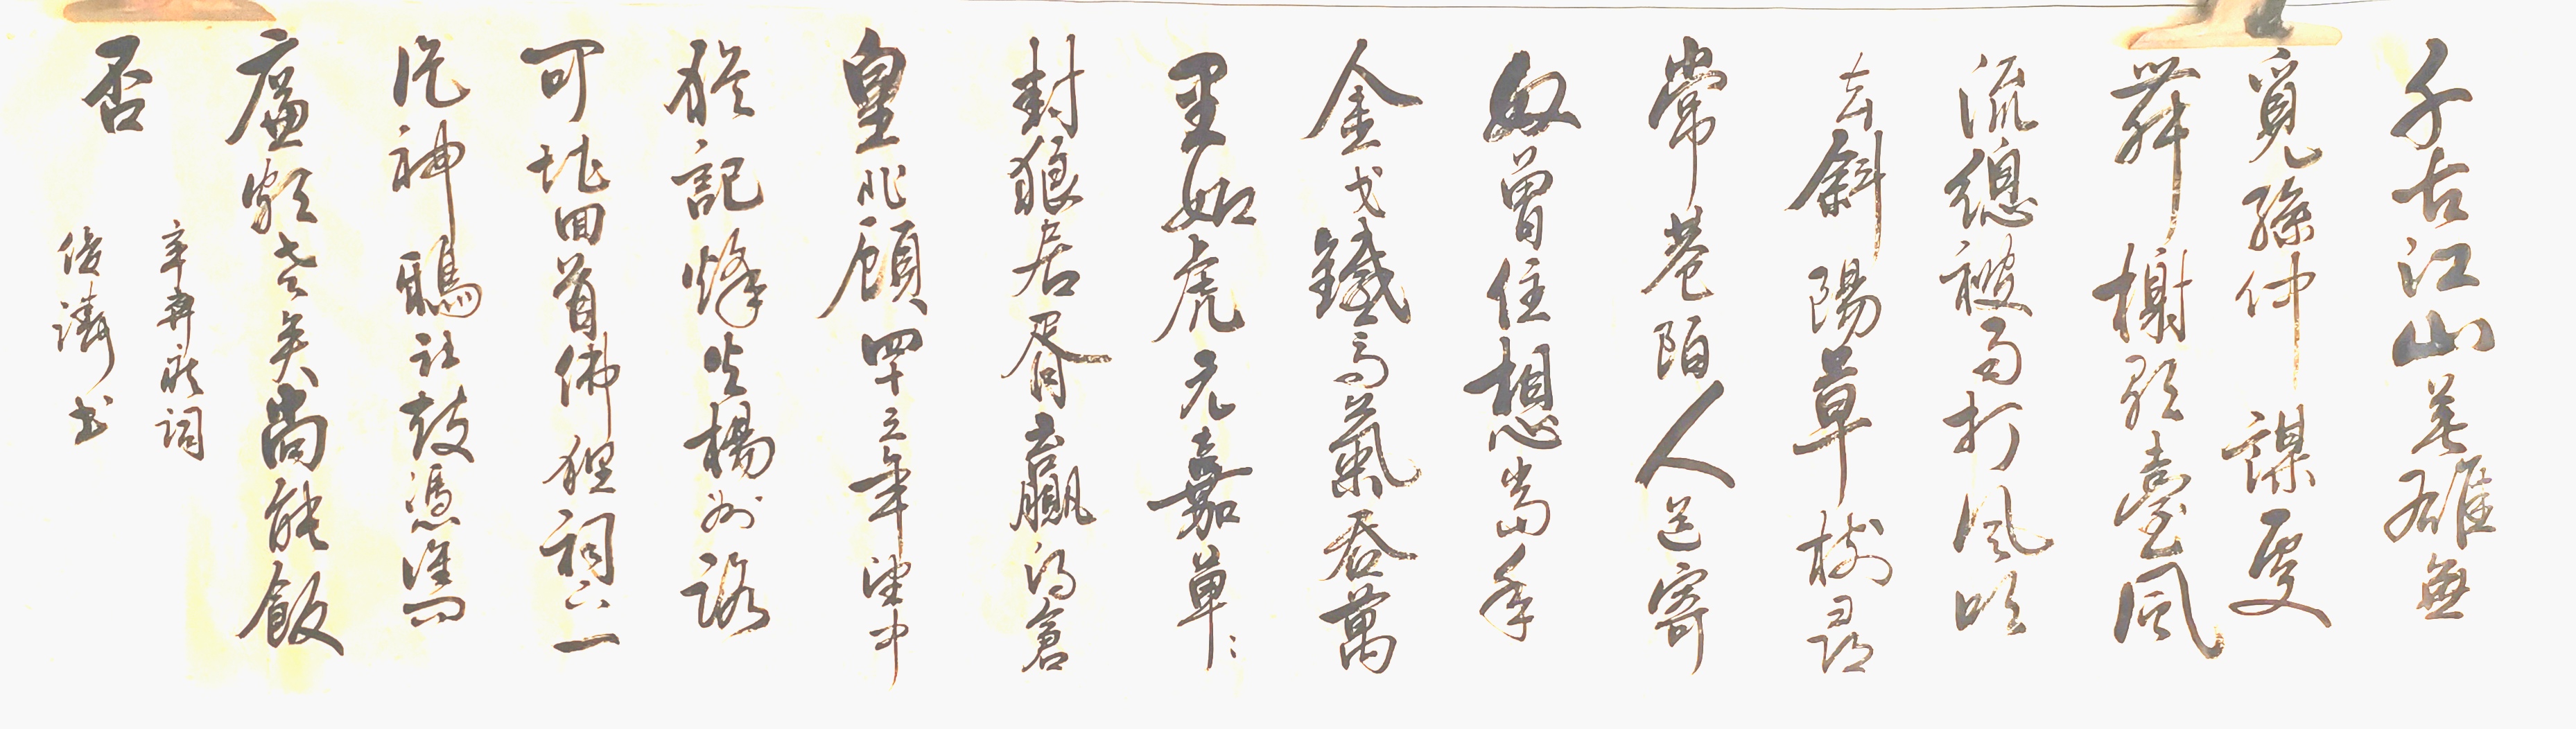 千古江山英雄無
覓孫仲謀處
舞榭歌臺風
流總被雨打風吹
去斜陽草樹尋
常巷陌人道寄
奴曾住想當年
金戈鐵馬氣吞萬
里如虎元嘉草〻
封狼居胥贏得倉
皇北顧四十三年望中
猶記烽火楊州路
可堪回首佛狸祠下一
神鴉社鼓憑誰問
廉頗老矣尚能飯
否
辛棄疾詞
俊濤書